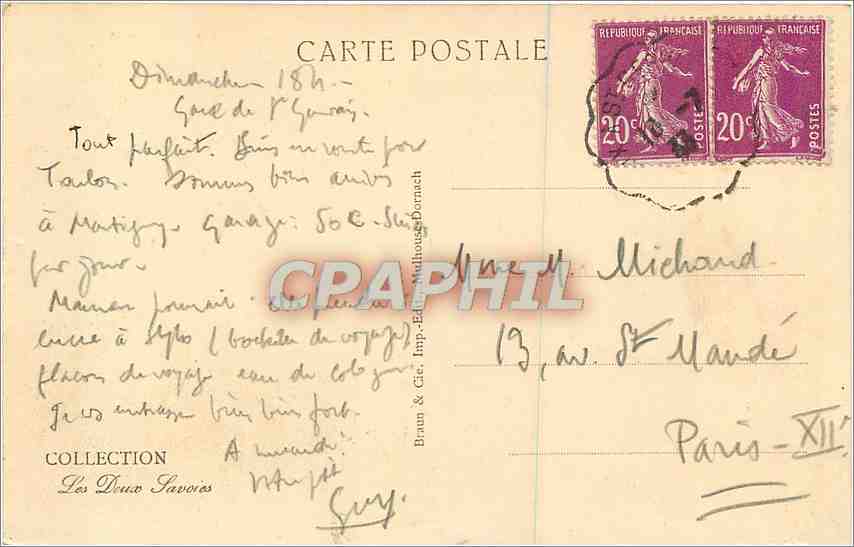 CARTE POSTALE
RÉPUBLIQUE FRANÇAISE
20c
POSTES
RÉPUBLIQUE FRANÇAISE
20c
POSTES
10 -7
Dimanche 18h -
Gare de St Gervais.
Tout parfait. en route pour
Toulon. Sommes bien arrivés
à Martigny. Garage: 50c. Suisse
par jour.
Maman pourrait-elle prendre
encre à stylo (bouteille de voyage)
flacon de voyage eau de cologne
Je vs embrasse bien bien fort.
A
Guy.
COLLECTION
Les Deux Savoies
Braun & Cie, Imp.-Edit., Mulhouse-Dornach
CPAPHIL
Mme M. Michaud
13, av. St Mandé
Paris - XIIe